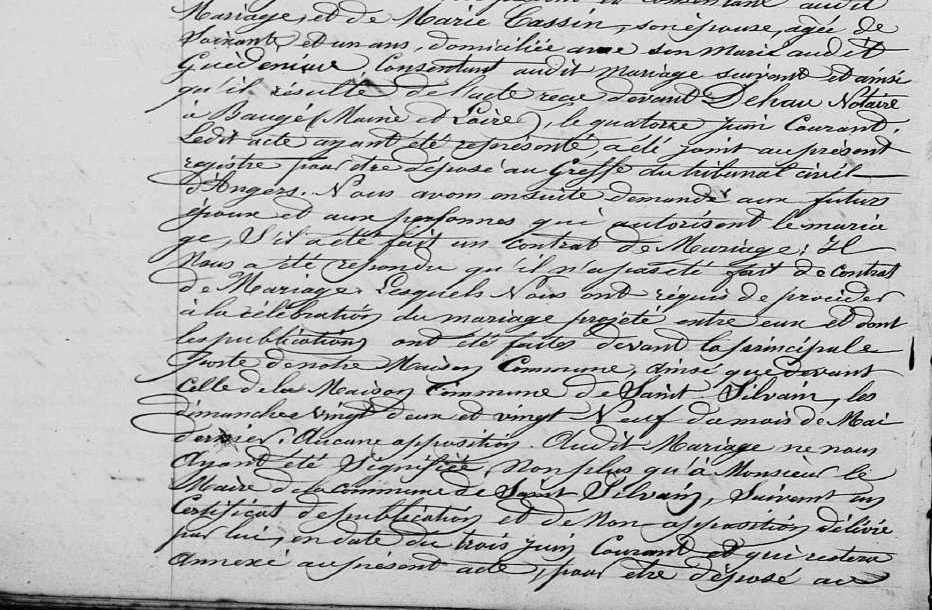 consentant audit
Mariage, et de Marie Cassin, son épouse, agée de
Soixante et un ans, domiciliée avec son Mari audit
Guédeniau Consentant audit mariage suivant et ainsi
qu'il résulte de l'acte recu devant Dehau Notaire
à Baugé (Maine et Loire), le quatorze juin Courant.
Ledit acte ayant été représenté, a été joint au présent
registre pour être déposé au Greffe du tribunal civil
d'Angers. Nous avons ensuite demandé aux futurs
époux et aux personnes qui autorisent le maria
ge, s'il a été fait un Contrat de Mariage; Il
Nous a été répondu qu'il n'a pas été fait de contrat
de Mariage. Lesquels Nous ont réquis de procéder
à la célébration du mariage projeté entre eux et dont
les publications ont été faites devant la principale
Porte de notre Maison Commune, ainsi que devant
Celle de la Maison Commune de Saint Silvain, les
dimanches vingt deux et vingt Neuf du mois de Mai
dernier. Aucune opposition Audit Mariage ne nous
Ayant été Signifiée, Non plus qu'à Monsieur le
Maire de la Commune de Saint Silvain, Suivant un
Certificat de publication et de Non opposition délivré
par lui, en date du trois juin Courant et qui restera
Annexé au présent acte, pour être déposé au